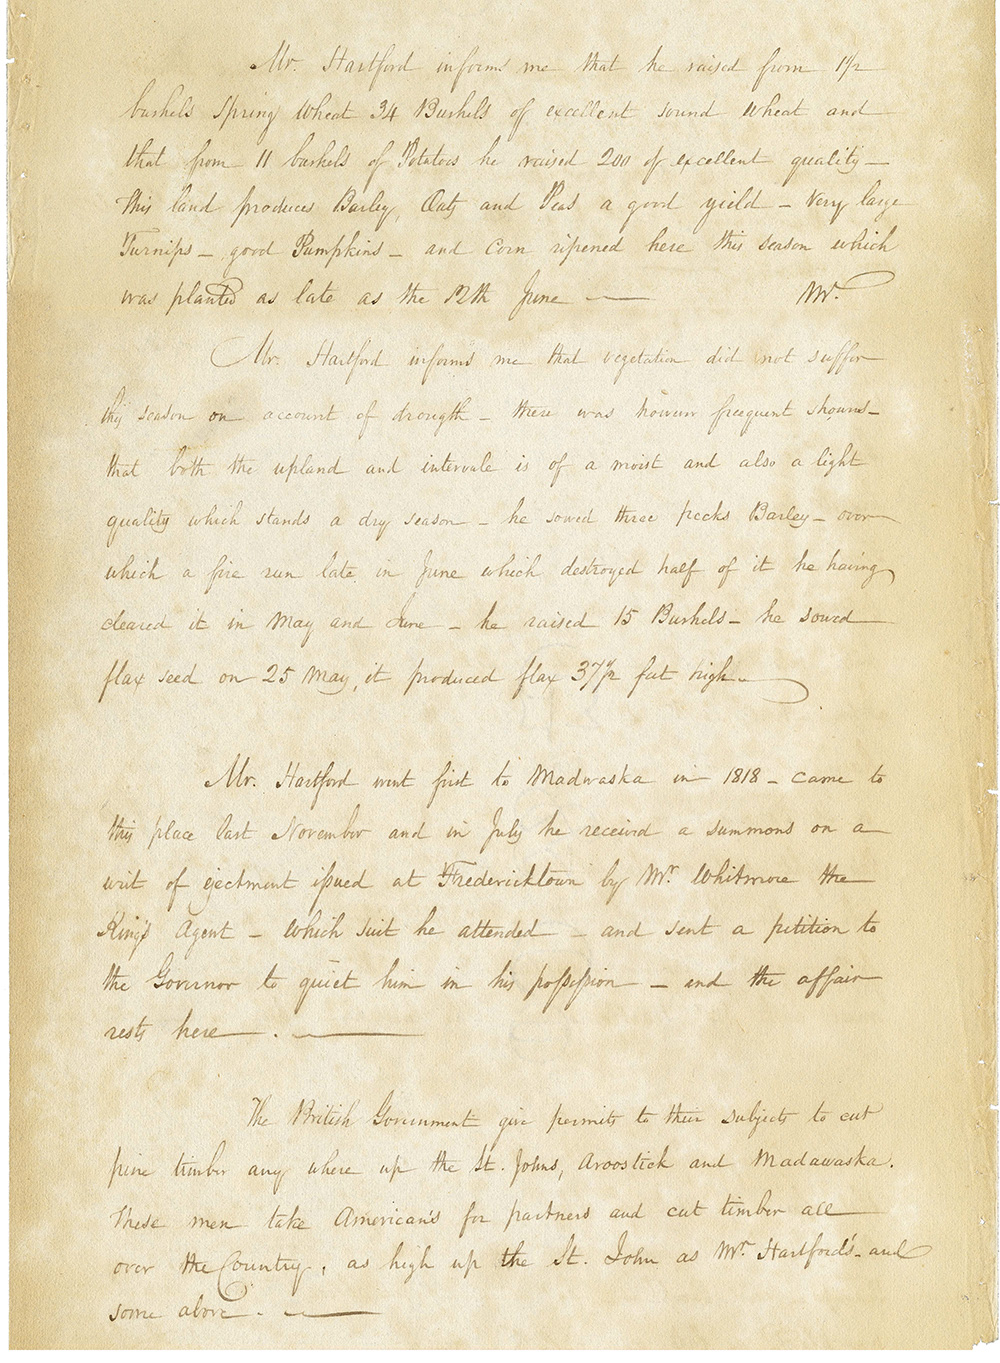 Mr. Hartford informs me that he raised from 1½
bushels Spring Wheat 34 Bushels of excellent sound Wheat and
that from 11 bushels of Potatoes he raised 200 of excellent quality —
This land produces Barley, Oats and Peas a good yield — Very large
Turnips — good Pumpkins — and Corn ripened here this season which
was planted as late as the 12th June — Mr.
Mr. Hartford informs me that vegetation did not suffer
this season on account of drougth — there was however freequent showers —
that both the upland and intervale is of a moist and also a light
quality which stands a dry season — he sowed three pecks Barley — over
which a fire run late in June which destroyed half of it he having
cleared it in May and June — he raised 15 Bushels — he sowed
flax seed on 25 May, it produced flax 37½ feet high. —
Mr. Hartford went first to Madwaska in 1818 — came to
this place last November and in July he received a summons on a
writ of ejectment issued at Fredericktown by Mr. Whitmore the
King's Agent — Which suit he attended — and sent a petition to
the Governor to quiet him in his possession — and the affair
rests here — . —
The British Government give permits to their subjects to cut
pine timber any where up the St. Johns, Aroostick and Madawaska.
These men take American's for partners and cut timber all
over the Country, as high up the St. John as Mr. Hartford's — and
some above — . —